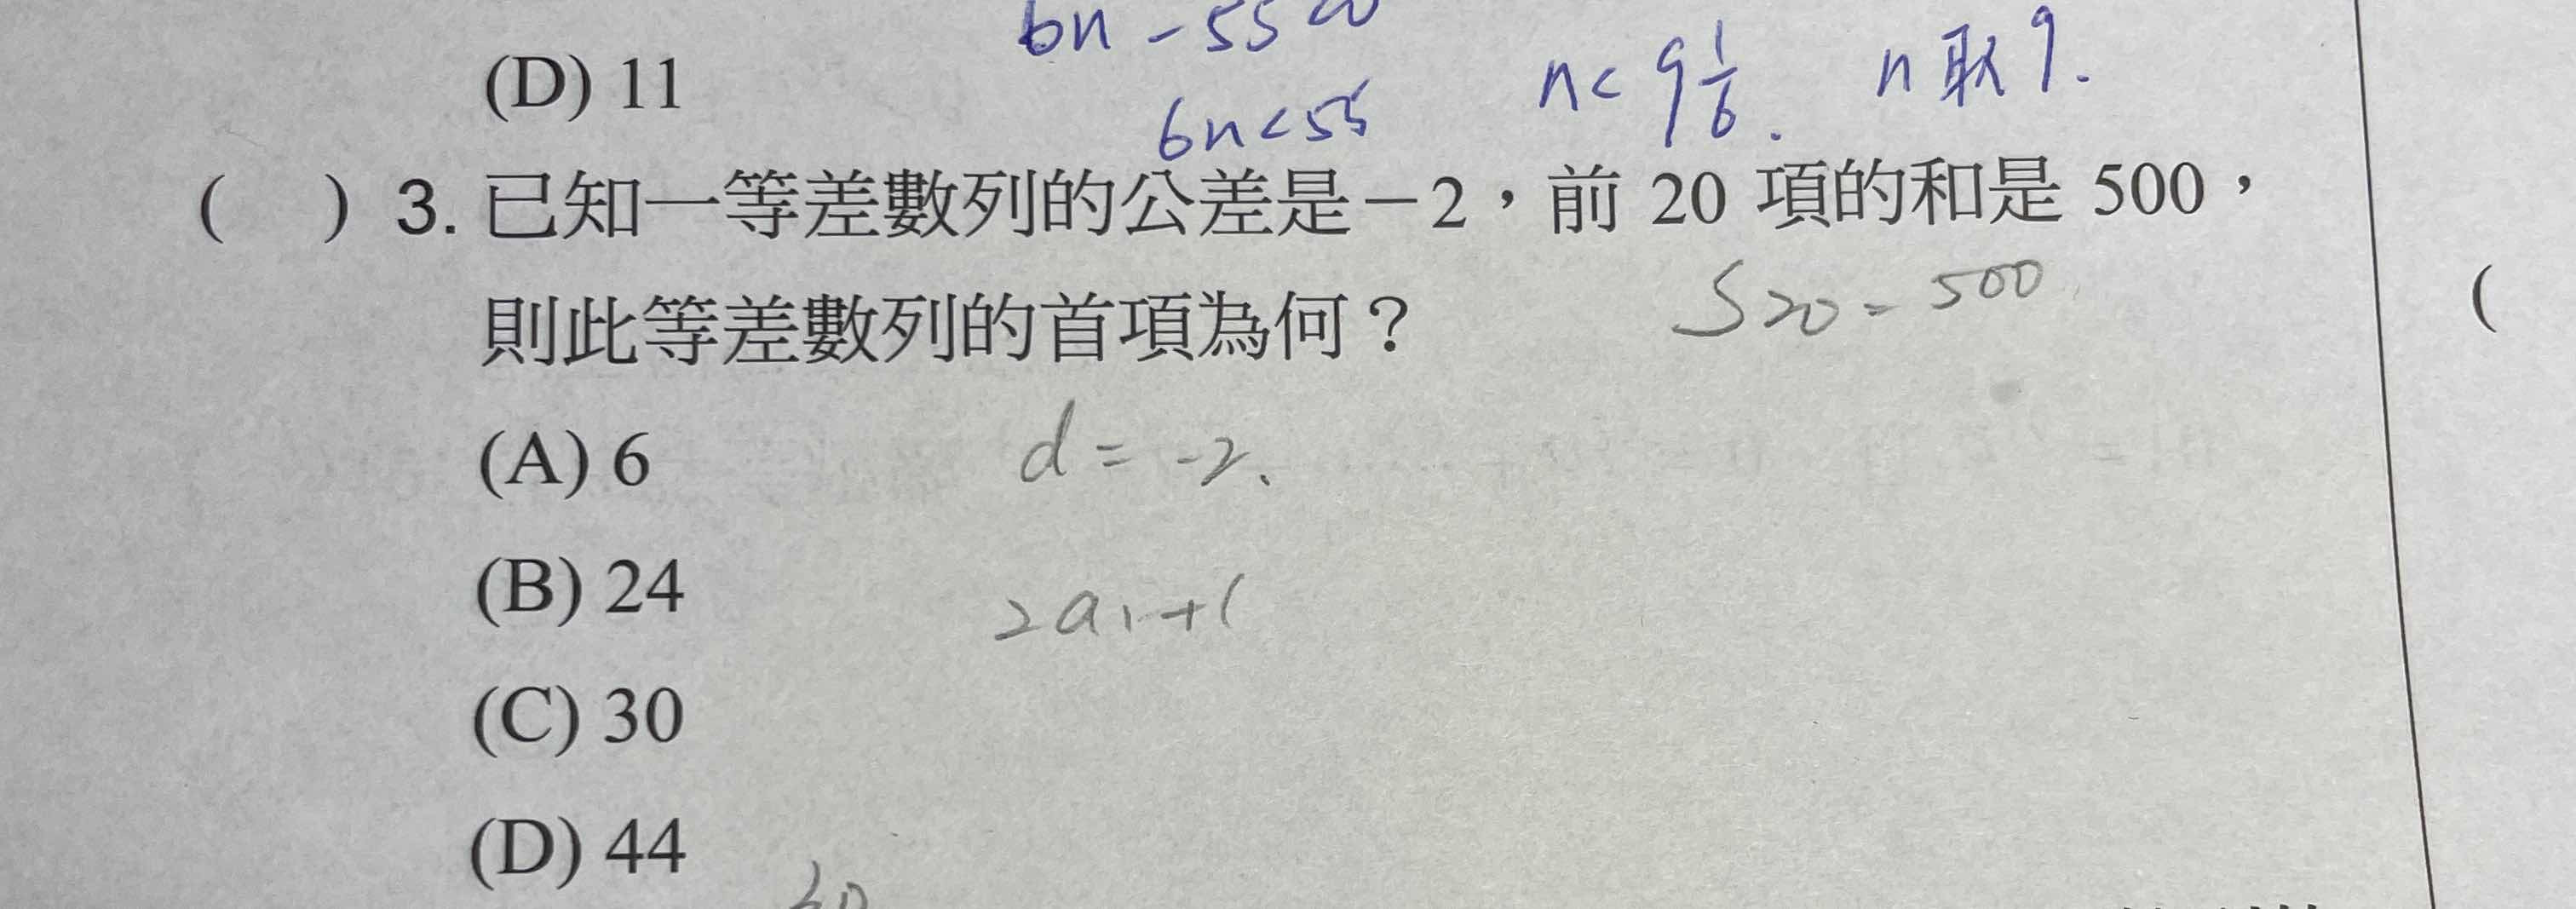 6n - 55 <0
(D) 11
n < 9 1/6 . n 取 9.
6n < 55
( ) 3. 已知一等差數列的公差是－2，前 20 項的和是 500，
S20 = 500
則此等差數列的首項為何？
(
(A) 6
d = -2.
(B) 24
2a1+(
(C) 30
(D) 44